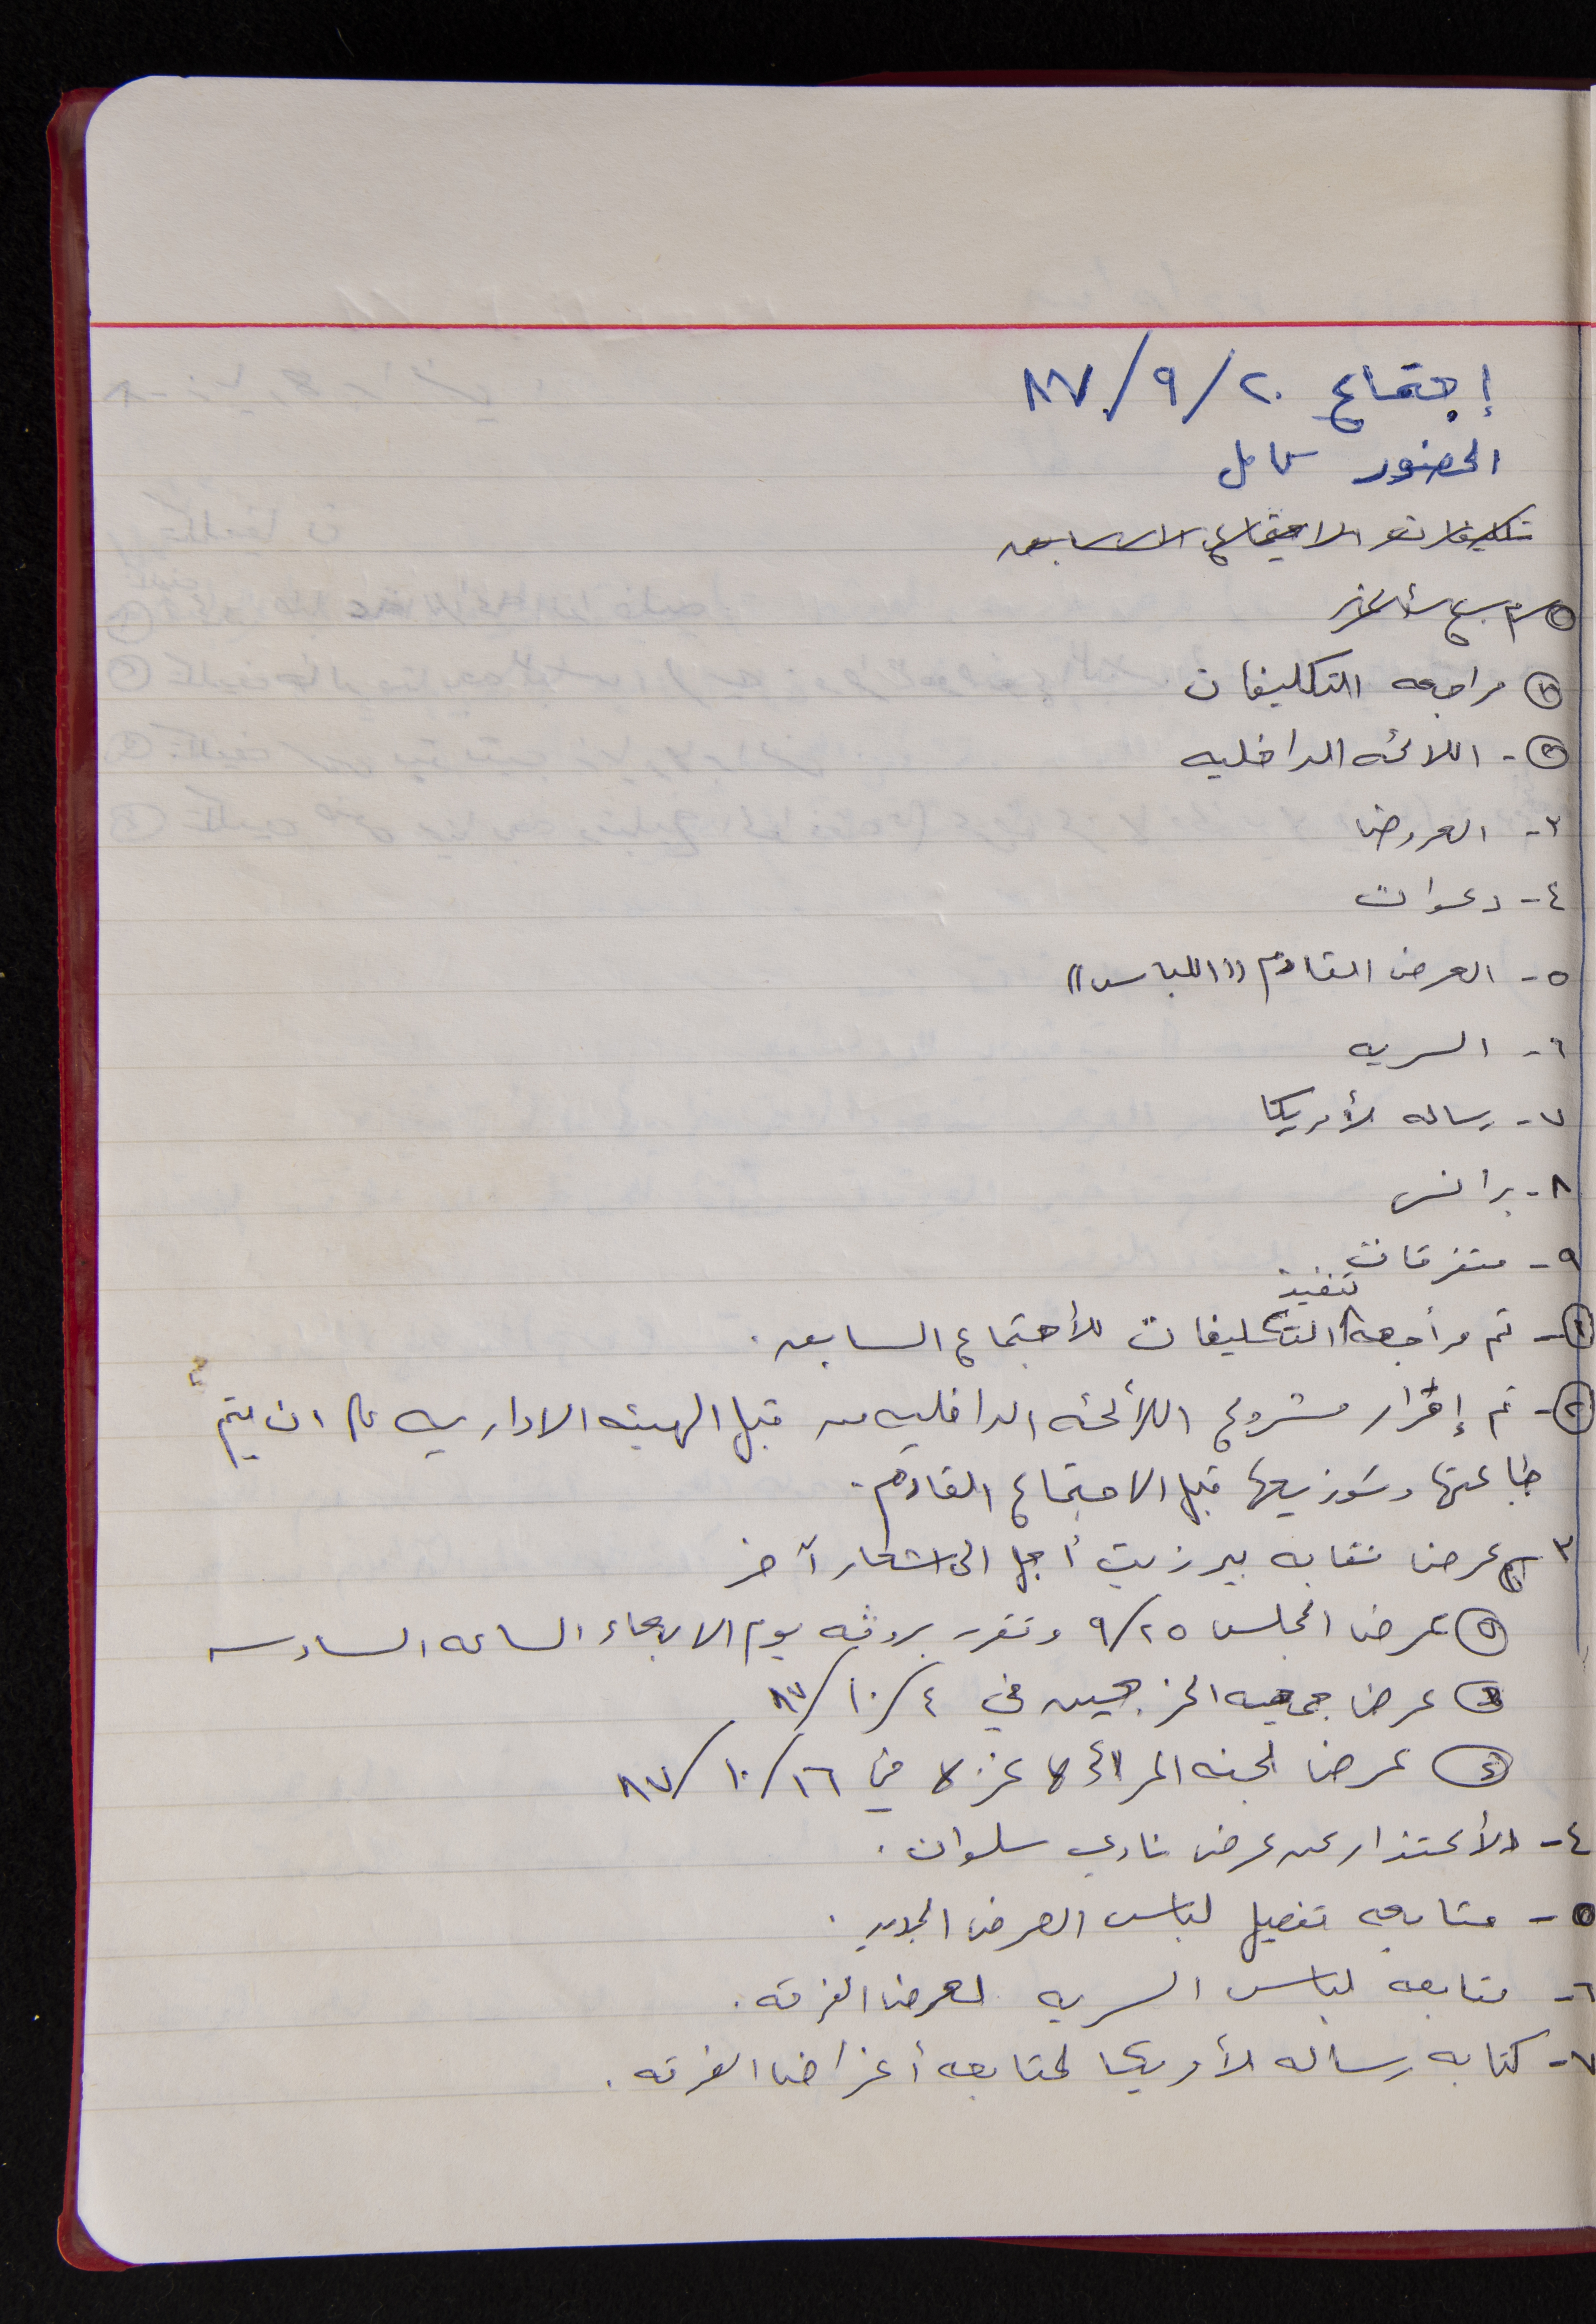 إجتماع ٢٠/٩/٨٧
الحضور كامل
تكليفات الاجتماع السابق
① مراجعه التكليفات
② - اللائحه الداخليه
٣ - العروض
٤ - دعوات
٥ - العرض القادم ((اللباس))
٦ - السريه
٧ - رساله لأمريكا
٨ - برانس
٩ - متفرقات
تنفيذ
① - تم مراجعة التكليفات للأجتماع السابق .
② - تم إقرار مشروع اللائحه الداخليه من قبل الهيئه الاداريه على ان يتم
طباعتها وتوزيعها قبل الاجتماع القادم .
٣ - عرض نقابه بيرزيت أجل الى اشعار آخر
عرض المجلس ٢٥/٩ وتقرر بروفه يوم الاربعاء الساعه السادسه
عرض جمعيه الخريجين في ٤/١٠/٨٧
عرض لجنه المرأه غزه في ١٦/١٠/٨٧
٤ - الأعتذار عن عرض نادي سلوان .
٥ - متابعه تفصيل لباس العرض الجديد .
٦ - متابعه لباس السريه لعرض الفرقه .
٧ - كتابه رساله لأمريكا لمتابعه أغراض الفرقه .